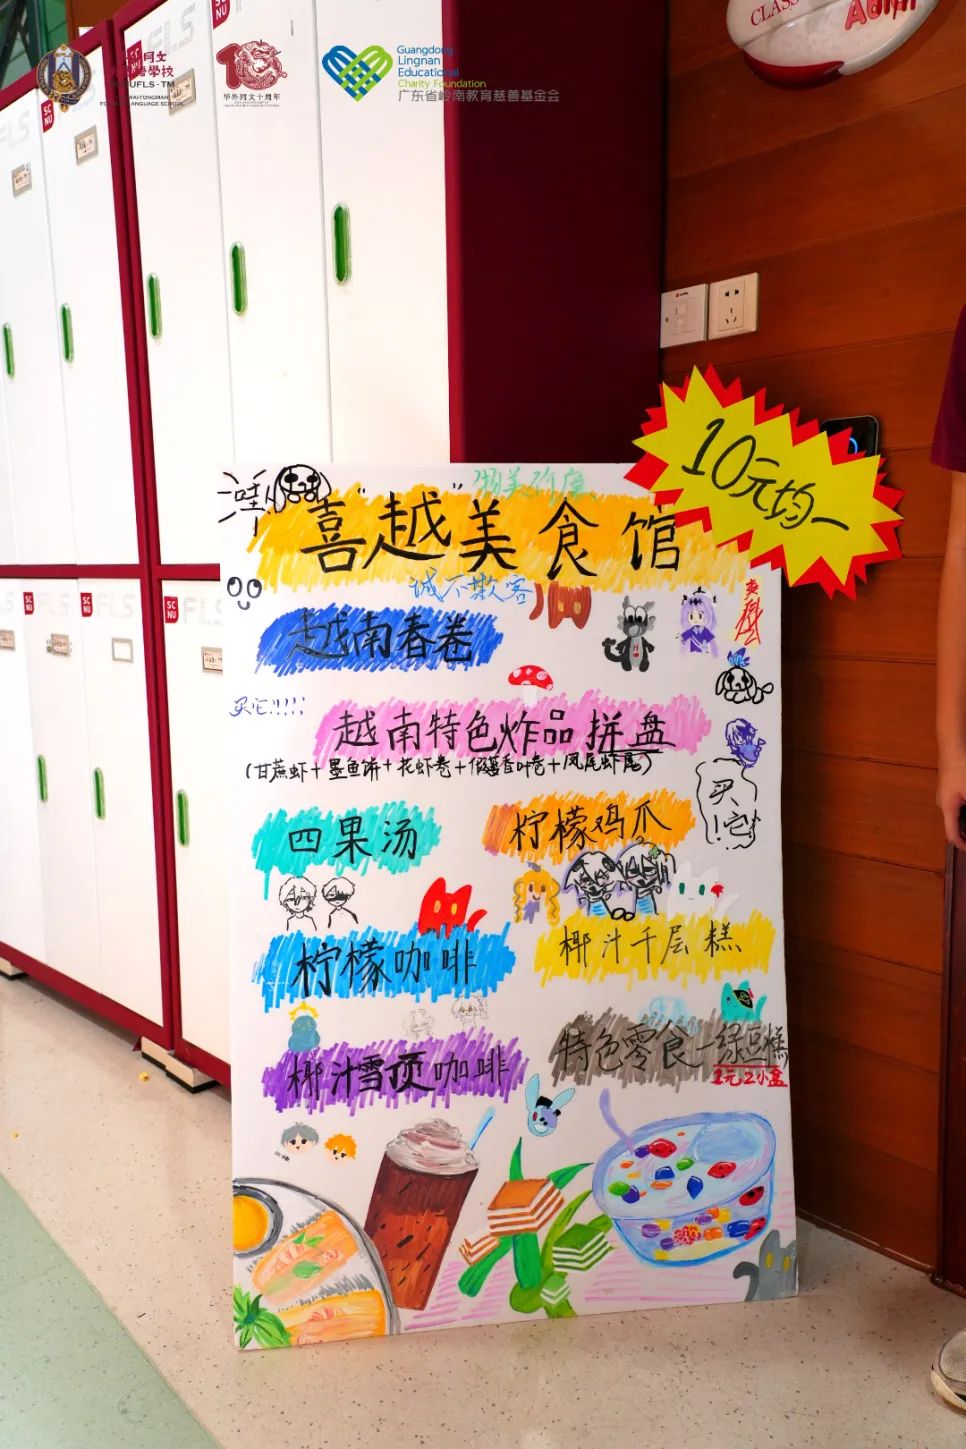 UFLS-TM
华外同文十周年
Guangdong
Lingnan
Educational
Charity Foundation
广东省岭南教育慈善基金会
CLASS
SCNU
FLS
10元均一
哇!
物美价廉
喜"越"美食馆
诚不欺客
越南春卷
买它!!!!!
越南特色炸品拼盘
(甘蔗虾+墨鱼饼+花虾卷+假蒌香叶卷+凤尾虾尾)
买它!
四果汤
柠檬鸡爪
柠檬咖啡
椰汁千层糕
椰汁雪顶咖啡
特色零食—绿豆糕
1元2小盒